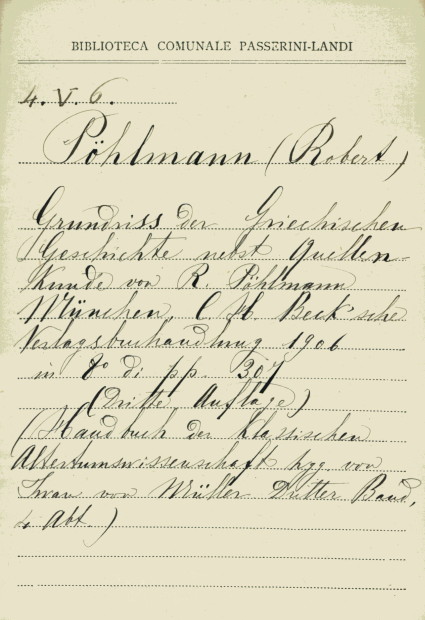 BIBLIOTECA COMUNALE PASSERINI-LANDI
4. V. 6.
Pöhlmann (Robert)
Grundriss der Griechischen
Geschichte nebst Quellen-
Kunde von R. Pöhlmann
München, C. H. Beck'sche
Verlagsbuchandlung 1906
in 8° di pp. 307
(Dritte Auflage)
(Handbuch der klassischen
Altertumswissenschaft hgg von
Iwan von Müller Dritter Band,
4 Abt.)